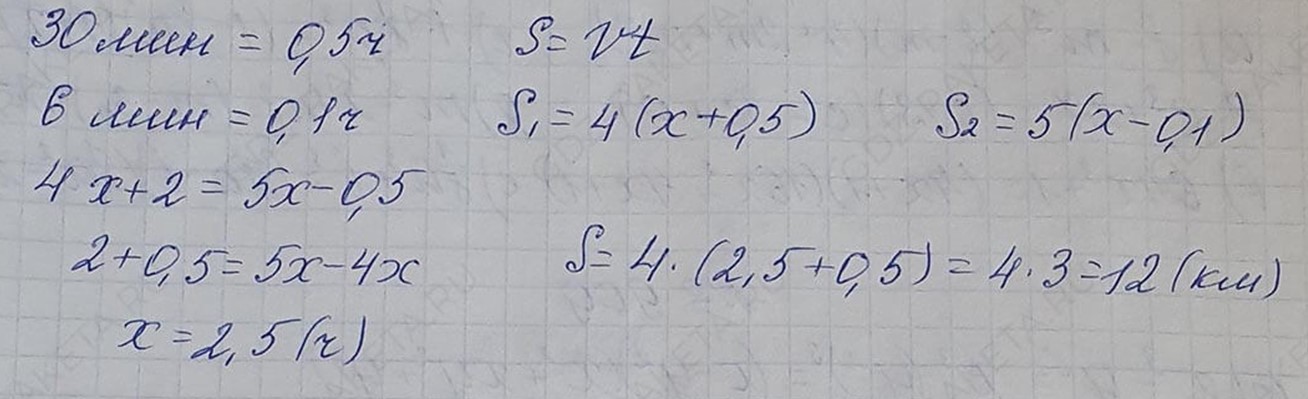 30 мин = 0,5ч S = Vt
6 мин = 0,1ч S₁ = 4(x+0,5) S₂ = 5(x-0,1)
4x+2 = 5x-0,5
2+0,5 = 5x-4x S = 4·(2,5+0,5) = 4·3 = 12 (км)
x = 2,5 (ч)